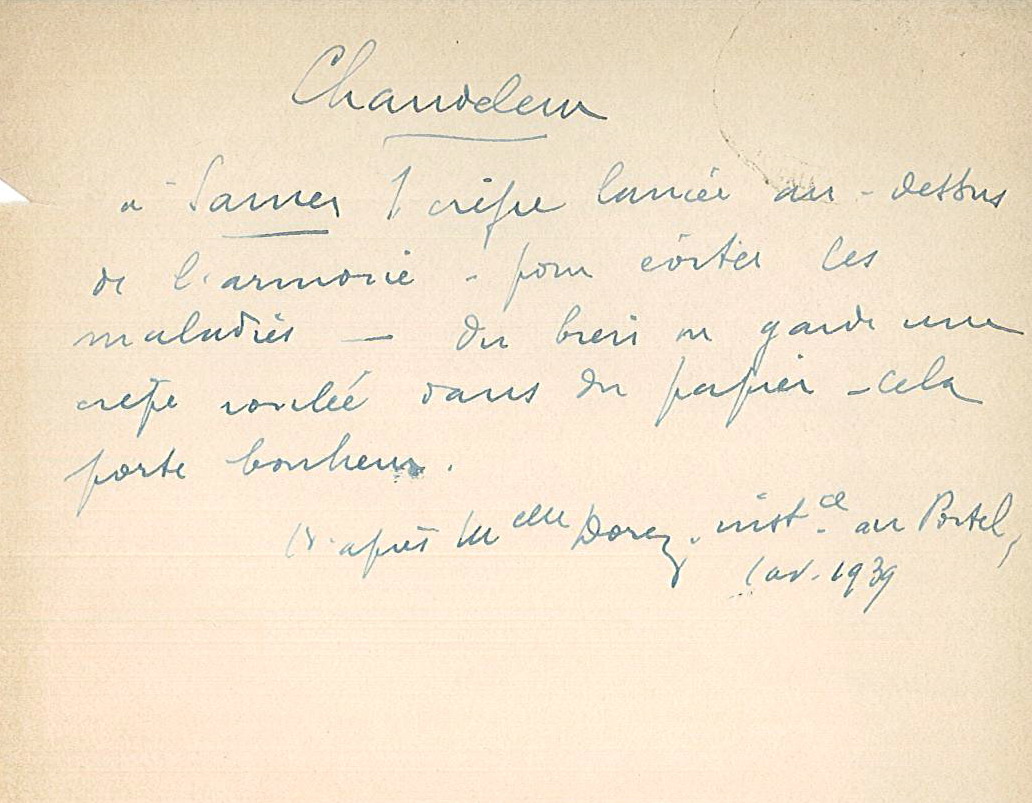 Chandeleur
à Samer 1 crêpe lancée au-dessus
de l'armoire - pour éviter les
maladies — Ou bien on garde une
crêpe roulée dans du papier - cela
porte bonheur.
D'après Melle Dorez, instce au Portel,
1 av. 1939